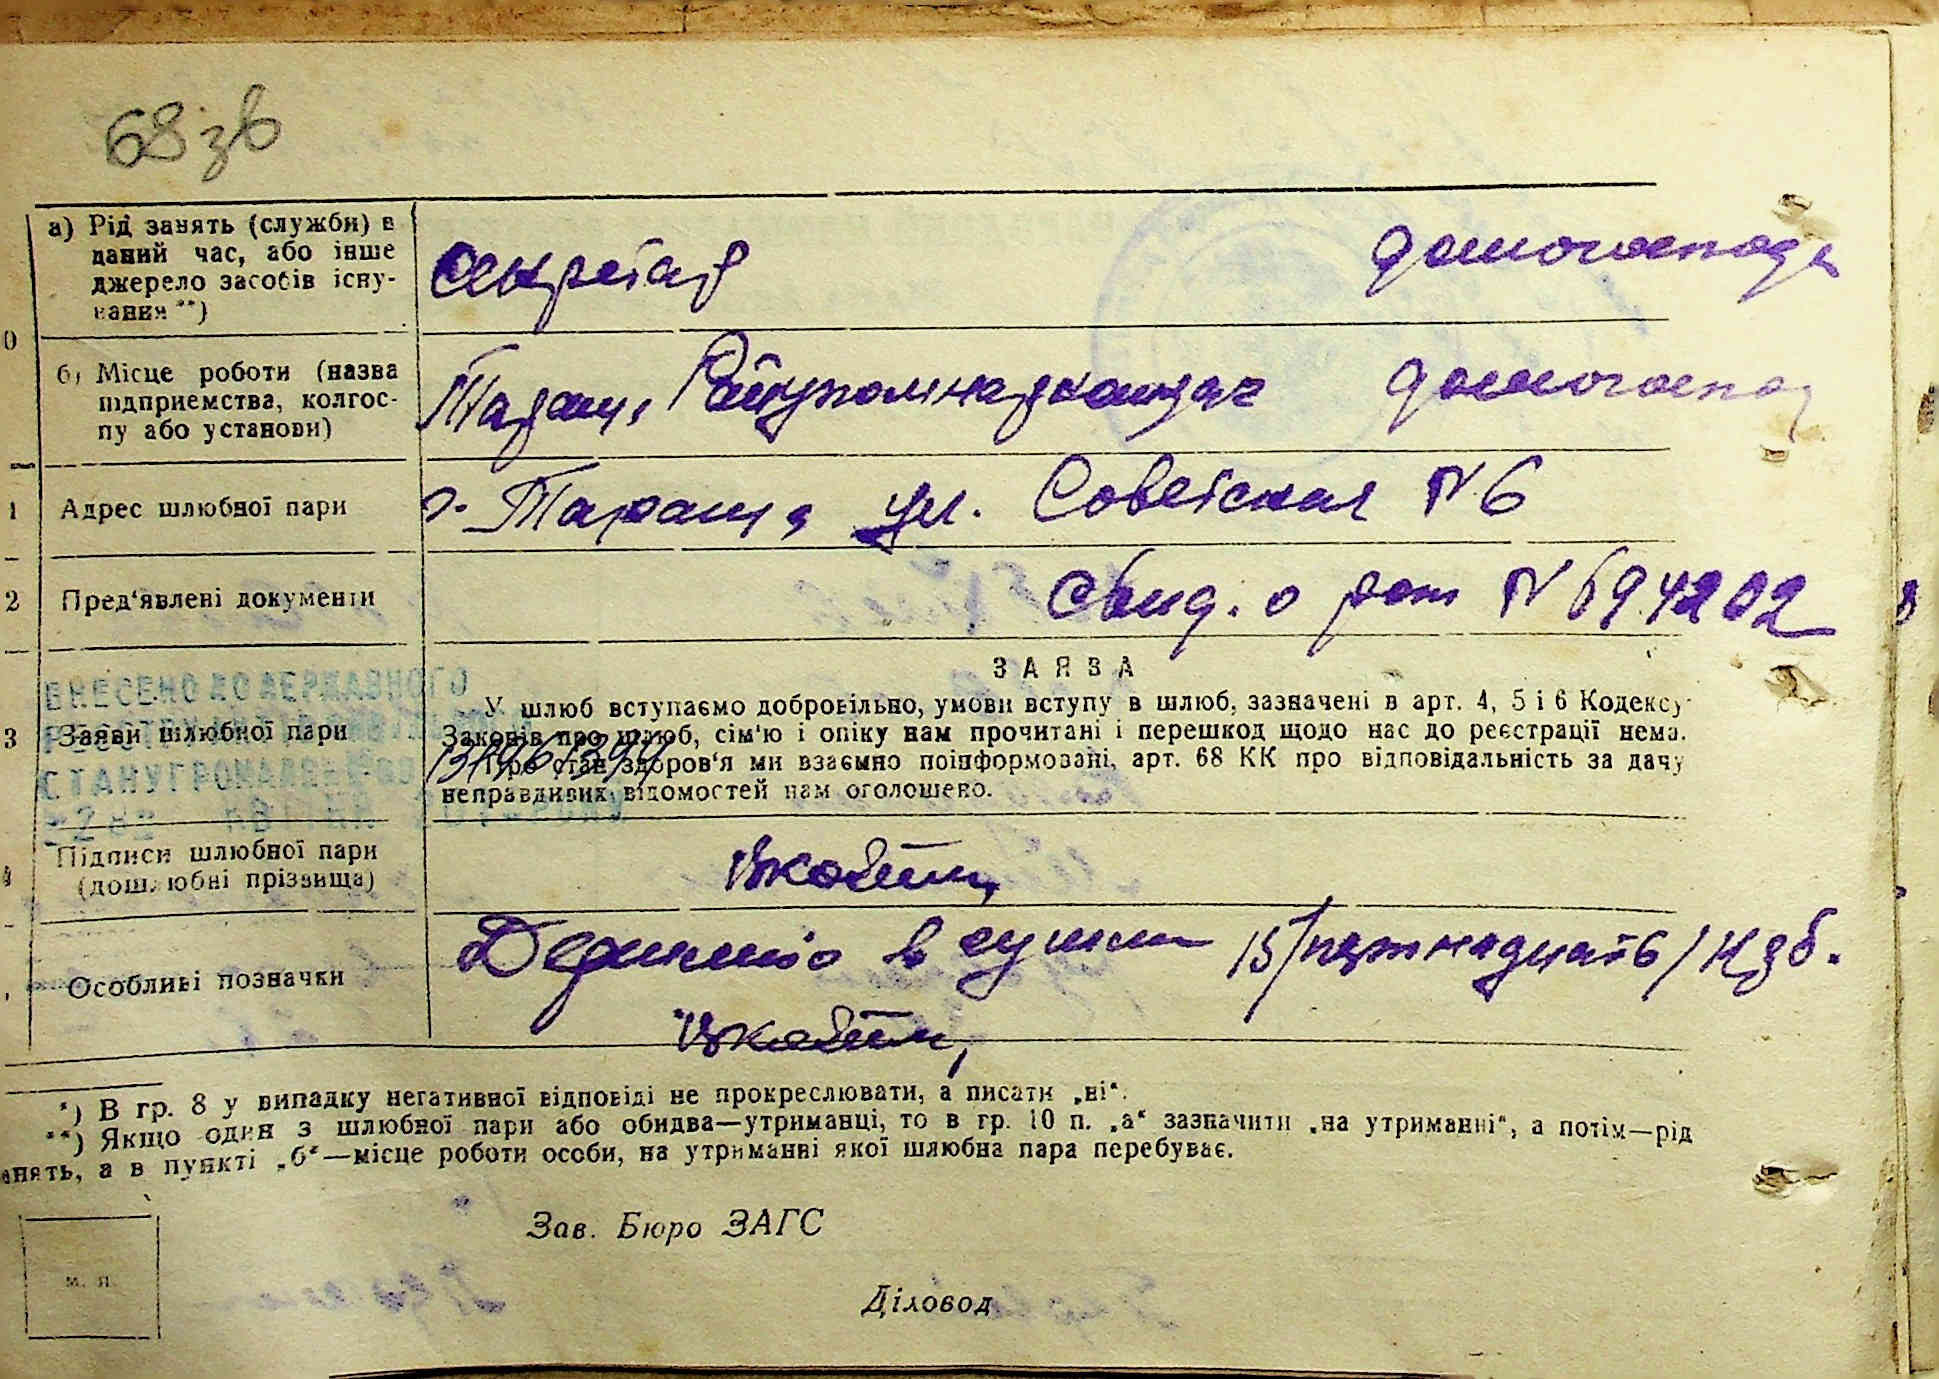 68 зв
а) Рід занять (служби) в
даний час, або інше
джерело засобів існу-
вання **)
Секретар
домогоспода
0
б) Місце роботи (назва
підприємства, колгос-
пу або установи)
Таращ.
домогоспод
1
Адрес шлюбної пари
г. Тараща ул. Советская № 6
2
Пред'явлені документи
Свид. о рож № 694202
ЗАЯВА
ВНЕСЕНО ДО ДЕРЖАВНОГО
3
Заяви шлюбної пари
У шлюб вступаємо добровільно, умови вступу в шлюб, зазначені в арт. 4, 5 і 6 Кодексу
Законів про шлюб, сім'ю і опіку нам прочитані і перешкод щодо нас до реєстрації нема.
Про стан здоров'я ми взаємно поінформовані, арт. 68 КК про відповідальність за дачу
неправдивих відомостей нам оголошено.
Підписи шлюбної пари
(дошлюбні прізвища)
Особливі позначки
в сумме 15 /пятнадцать/ крб.
*) В гр. 8 у випадку негативної відповіді не прокреслювати, а писати „ні“.
**) Якщо один з шлюбної пари або обидва—утриманці, то в гр. 10 п. „а“ зазначити „на утриманні“, а потім—рід
анять, а в пункті „б“—місце роботи особи, на утриманні якої шлюбна пара перебуває.
Зав. Бюро ЗАГС
м. п.
Діловод